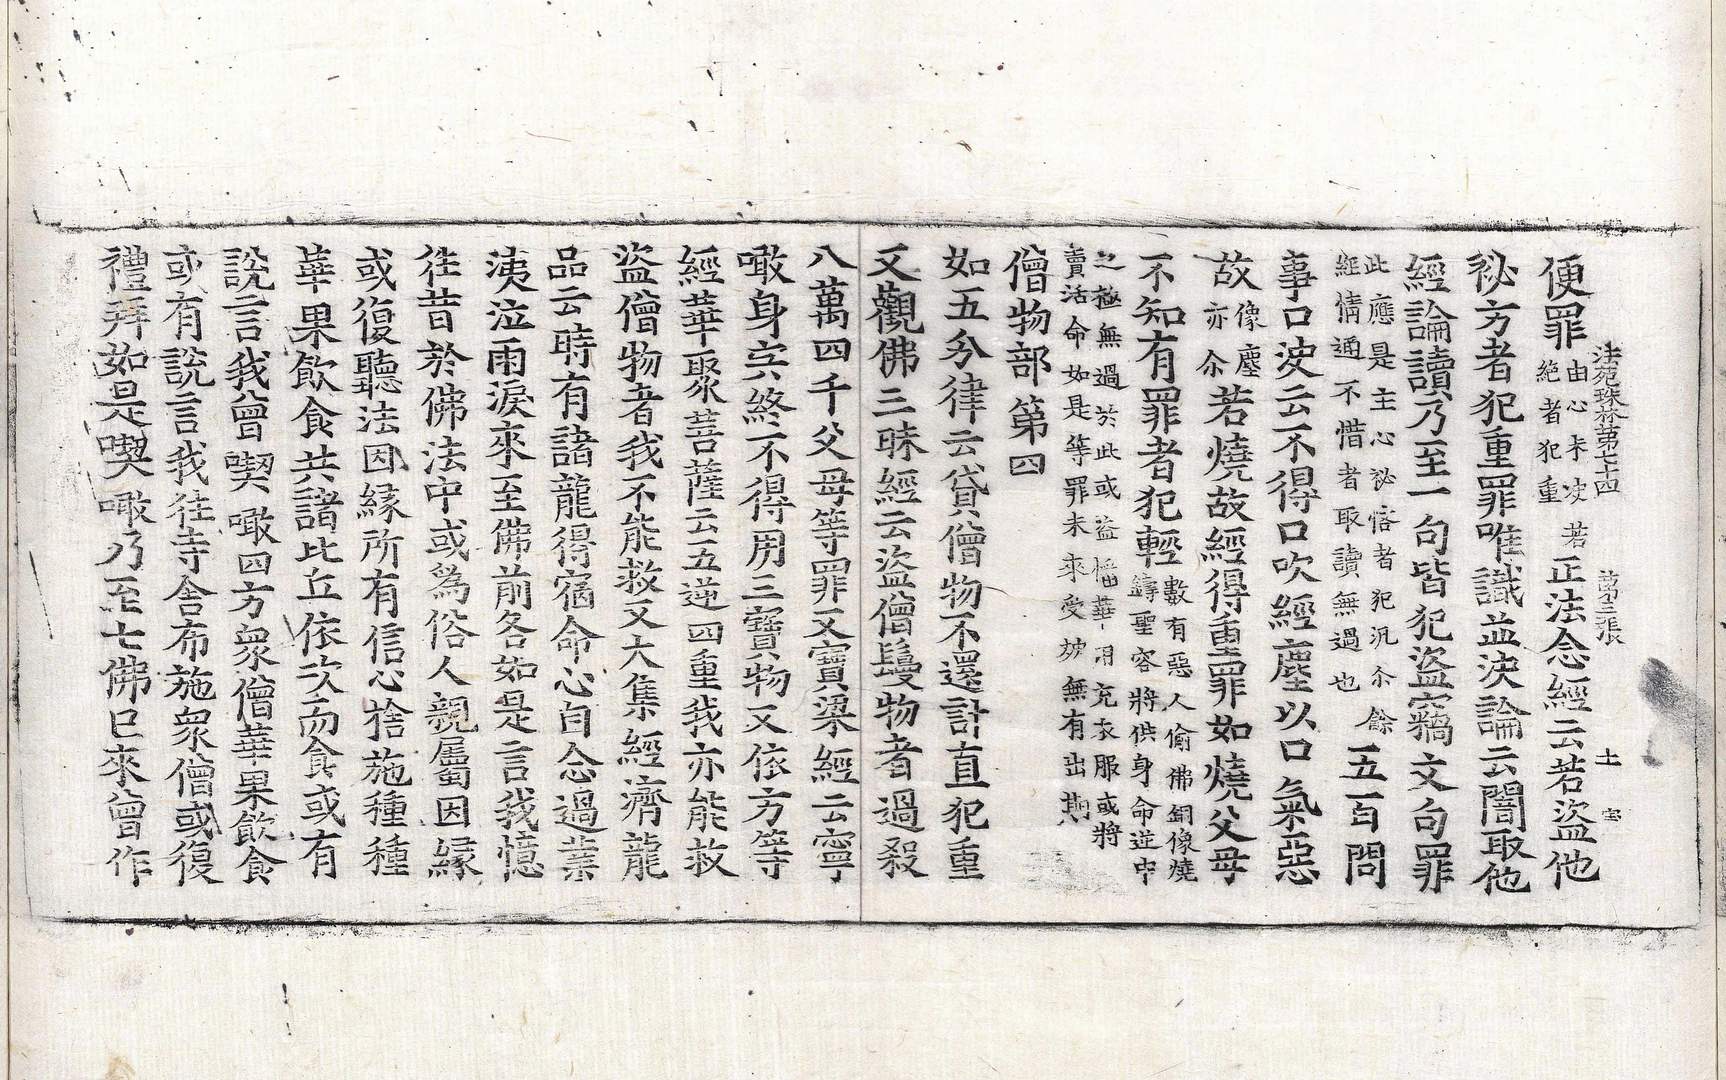 法苑珠林第七十四　第三張　土　宝
便罪由心未决絶者犯重若正法念經云若盜他
祕方者犯重罪唯識並決論云闇取他
經論讀乃至一句皆犯盜竊文句罪
此應是主心祕悋者犯汎尒餘經情通不惜者取讀無過也五百問
事口決云不得口吹經塵以口氣惡
故像塵亦尒若燒故經得重罪如燒父母
不知有罪者犯輕數有惡人偷佛銅像燒鑄聖容將供身命逆中
之極無過於此或盜幡華用充衣服或將賣活命如是等罪未來受故無有出期
僧物部第四
如五分律云貸僧物不還計直犯重
又觀佛三昧經云盜僧鬘物者過殺
八萬四千父母等罪又寶梁經云寧
噉身宍終不得用三寶物又依方等
經華聚菩薩云五逆四重我亦能救
盜僧物者我不能救又大集經濟龍
品云時有諸龍得宿命心自念過業
洟泣雨淚來至佛前各如是言我憶
往昔於佛法中或爲俗人親屬因緣
或復聽法因緣所有信心捨施種種
華果飲食共諸比丘依次而食或有
說言我曾喫噉四方眾僧華果飲食
或有說言我往寺舍布施眾僧或復
禮拜如是喫噉乃至七佛已來曾作